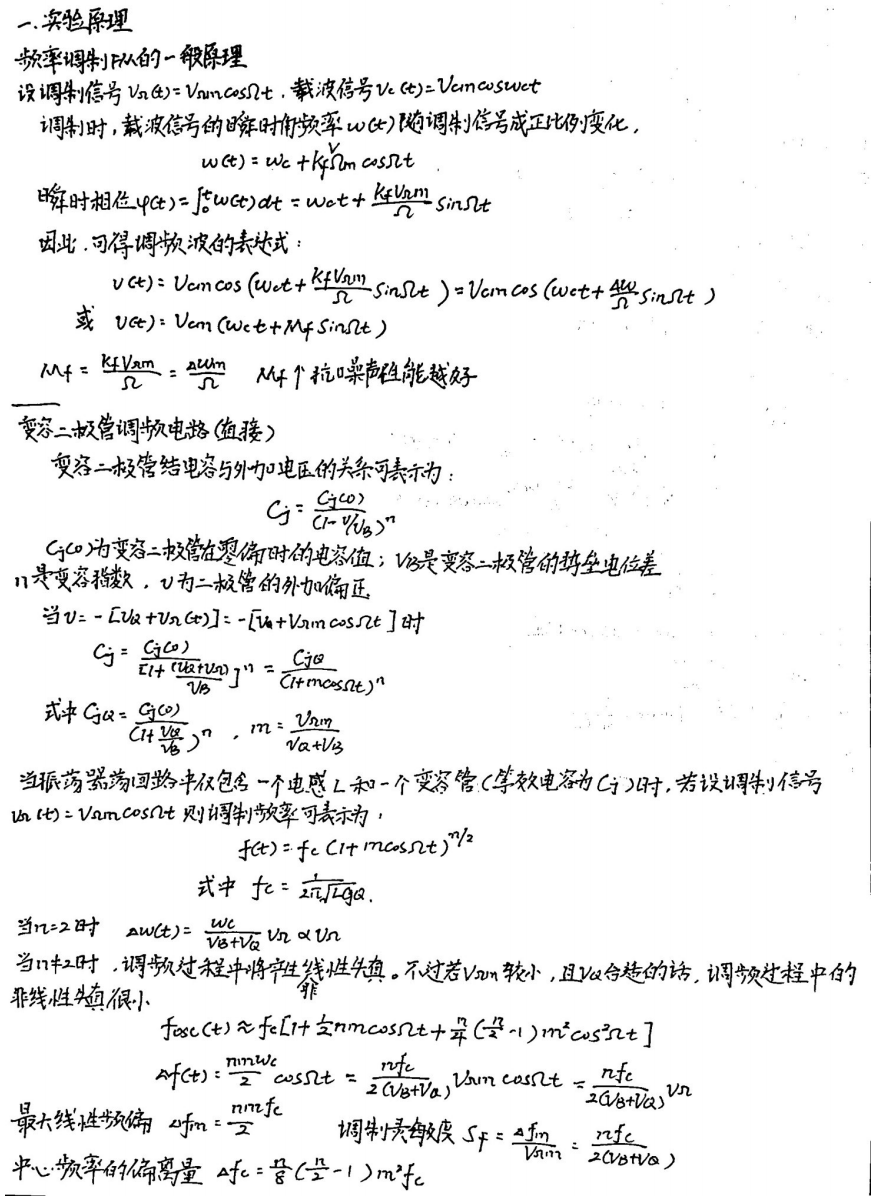 一.实验原理
频率调制FM的一般原理
设调制信号 VΩ(t)=VΩm cosΩt, 载波信号 Vc(t)=Vcm cosωct
调制时,载波信号的瞬时角频率 ω(t)随调制信号成正比例变化,
ω(t) = ωc + kfVΩm cosΩt
瞬时相位φ(t)=∫₀ᵗω(t)dt = ωct + kfVΩm/Ω sinΩt
因此,可得调频波的表达式:
υ(t) = Vcm cos (ωct + kfVΩm/Ω sinΩt) = Vcm cos (ωct + Δω/Ω sinΩt)
或 υ(t) = Vcm (ωct + Mf sinΩt)
Mf = kfVΩm/Ω = Δωm/Ω Mf↑抗噪声性能越好
变容二极管调频电路(直接)
变容二极管结电容与外加电压的关系可表示为:
Cj = Cj(0)/(1-υ/VB)ⁿ
Cj(0)为变容二极管在零偏时的电容值; VB是变容二极管的势垒电位差
n是变容指数, υ为二极管的外加偏压
当υ = -[VQ+VΩ(t)] = -[VQ+VΩm cosΩt]时
Cj = Cj(0)/[1+(VQ+VΩ)/VB]ⁿ = CjQ/(1+mcosΩt)ⁿ
式中 CjQ = Cj(0)/(1+VQ/VB)ⁿ, m = VΩm/(VQ+VB)
当振荡器荡回路中仅包含一个电感L和一个变容管(等效电容为Cj)时,若设调制信号
VΩ(t) = VΩm cosΩt 则调制频率可表示为:
f(t) = fc (1+mcosΩt)^(n/2)
式中 fc = 1/(2π√(LCjQ)).
当n=2时 Δω(t) = ωc/(VB+VQ) VΩ ∝ VΩ
当n≠2时,调频过程中将产生非线性失真。不过若VΩm较小,且VQ合适的话,调频过程中的
非线性失真很小.
fosc(t) ≈ fc[1+½nmcosΩt + n/4(n/2-1)m²cos²Ωt]
Δf(t) = nmωc/2 cosΩt = nfc/(2(VB+VQ)) VΩm cosΩt = nfc/(2(VB+VQ)) VΩ
最大线性频偏 Δfm = nmfc/2 调制灵敏度 Sf = Δfm/VΩm = nfc/(2(VB+VQ))
中心频率的偏离量 Δfc = n/8(n/2-1)m²fc